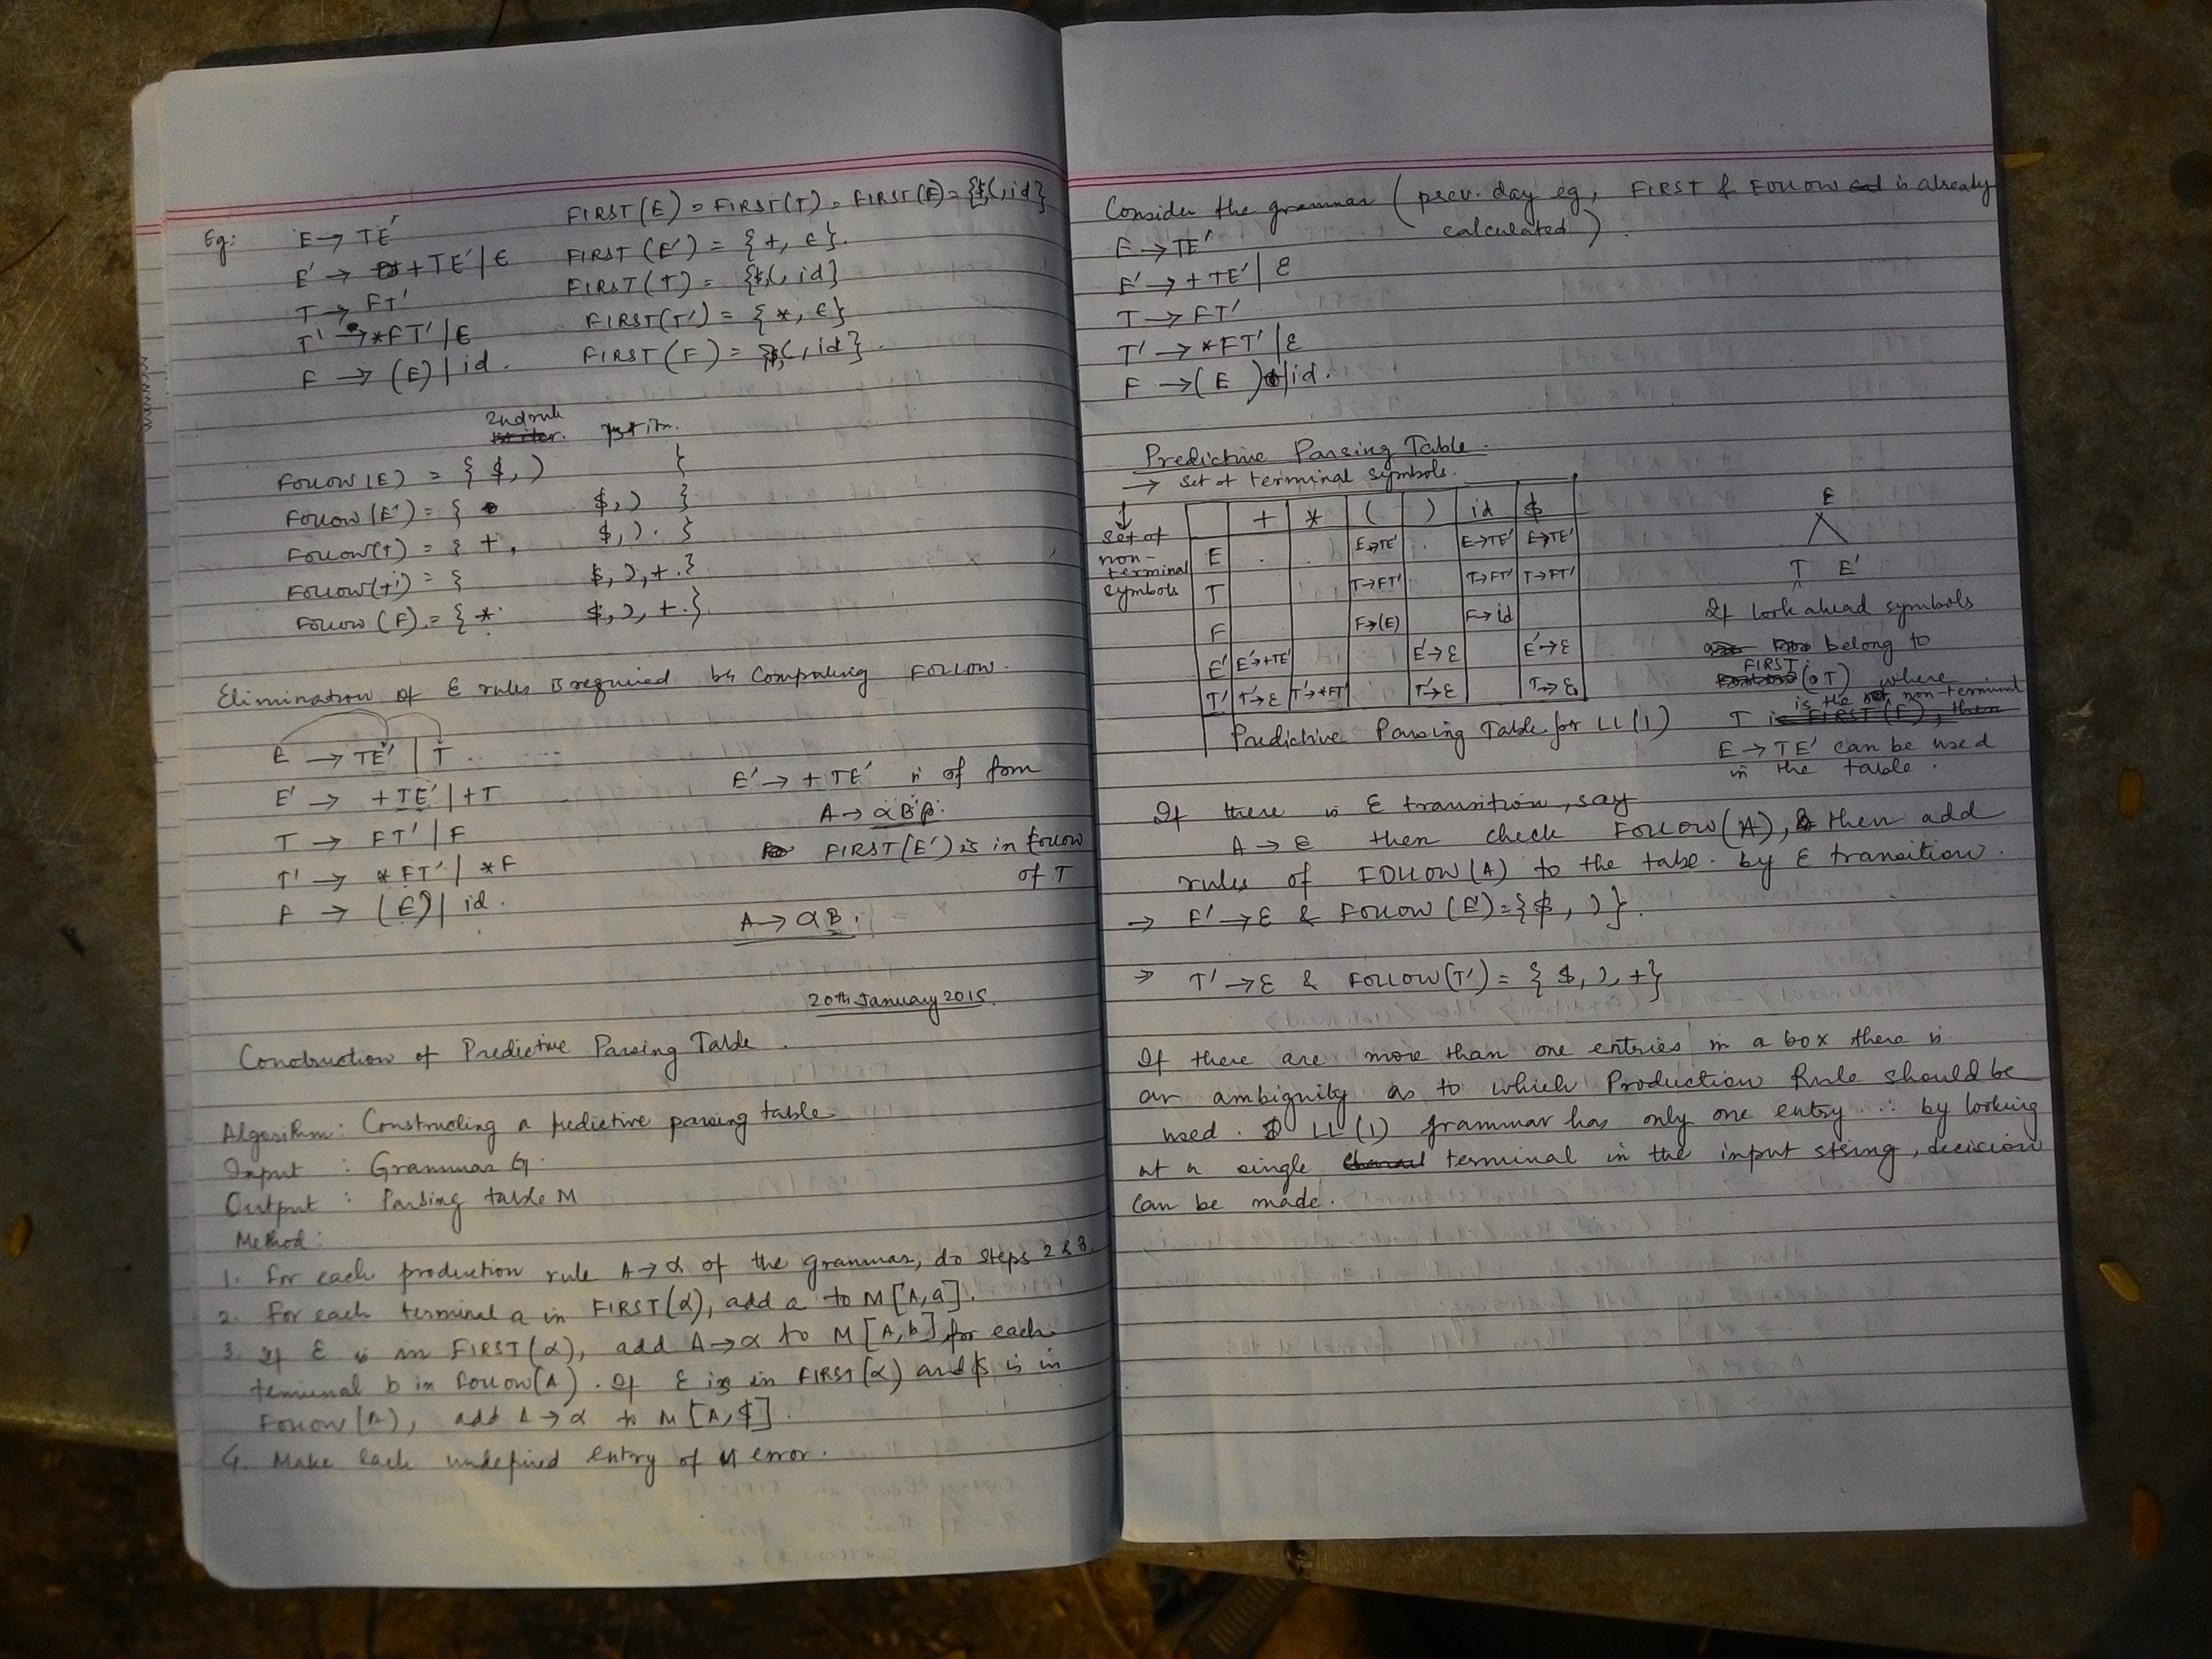 Eg:
E → TE' FIRST(E) = FIRST(T) = FIRST(F) = {(, id}
E' → +TE' | ε FIRST(E') = {+, ε}.
T → FT' FIRST(T) = {(, id}
T' → *FT' | ε FIRST(T') = {*, ε}
F → (E) | id. FIRST(F) = {(, id}.
2nd rule
Follow(E) = { $, ) }
Follow(E') = { $, ) }
Follow(T) = { +, $, ). }
Follow(T') = { $, ), +. }
Follow(F) = { *. $, ), +. }
Elimination of ε rules is required by Computing Follow.
E → TE' | T
E' → +TE' | +T E' → +TE' is of form
T → FT' | F A → αBβ.
T' → *FT' | *F FIRST(E') is in Follow
F → (E) | id. of T
A → αB.
20th January 2015.
Construction of Predictive Parsing Table.
Algorithm: Constructing a predictive parsing table
Input : Grammar G.
Output : Parsing table M
Method:
1. For each production rule A→α of the grammar, do steps 2 & 3.
2. For each terminal a in FIRST(α), add a to M[A,a].
3. If ε is in FIRST(α), add A→α to M[A,b], for each
terminal b in Follow(A). If ε is in FIRST(α) and $ is in
Follow(A), add A→α to M[A,$].
4. Make each undefined entry of M error.
Consider the grammar (prev. day eg, FIRST & Follow is already
calculated)
E → TE'
E' → +TE' | ε
T → FT'
T' → *FT' | ε
F → (E) | id.
Predictive Parsing Table.
→ set of terminal symbols.
↓
set of
non-
terminal
symbols
+ * ( ) id $
E E→TE' E→TE' E→TE'
T T→FT' T→FT' T→FT'
F F→(E) F→id
E' E'→+TE' E'→ε E'→ε
T' T'→ε T'→*FT' T'→ε T'→ε
Predictive Parsing Table for LL(1)
E
T E'
If look ahead symbols
belong to
FIRST(T) where
T is the non-terminal
E→TE' can be used
in the table.
If there is ε transition, say
A → ε then check Follow(A), then add
rules of Follow(A) to the table. by ε transition.
→ E' → ε & Follow(E') = {$, )}.
→ T' → ε & Follow(T') = {$, ), +}
If there are more than one entries in a box there is
an ambiguity as to which Production Rule should be
used. LL(1) grammar has only one entry ∴ by looking
at a single terminal in the input string, decision
can be made.